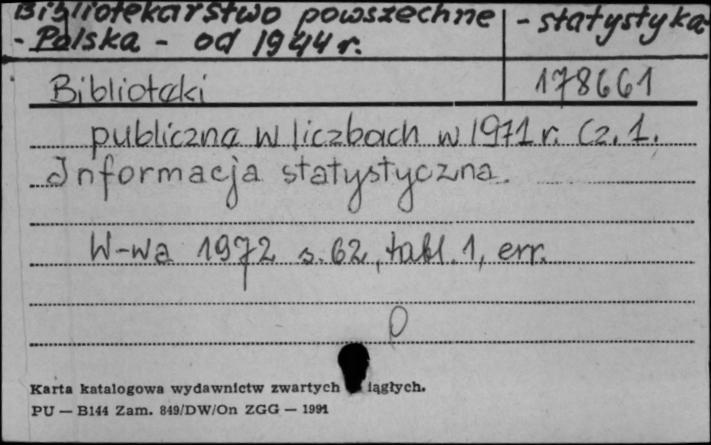 Bibliotekarstwo powszechne - statystyka
- Polska - od 1944 r.
Biblioteki 178661
publiczne w liczbach w 1971 r. Cz. 1.
Informacja statystyczna.
W-wa 1972 s. 62, tabl. 1, err.
Karta katalogowa wydawnictw zwartych iągłych.
PU — B144 Zam. 849/DW/On ZGG — 1991